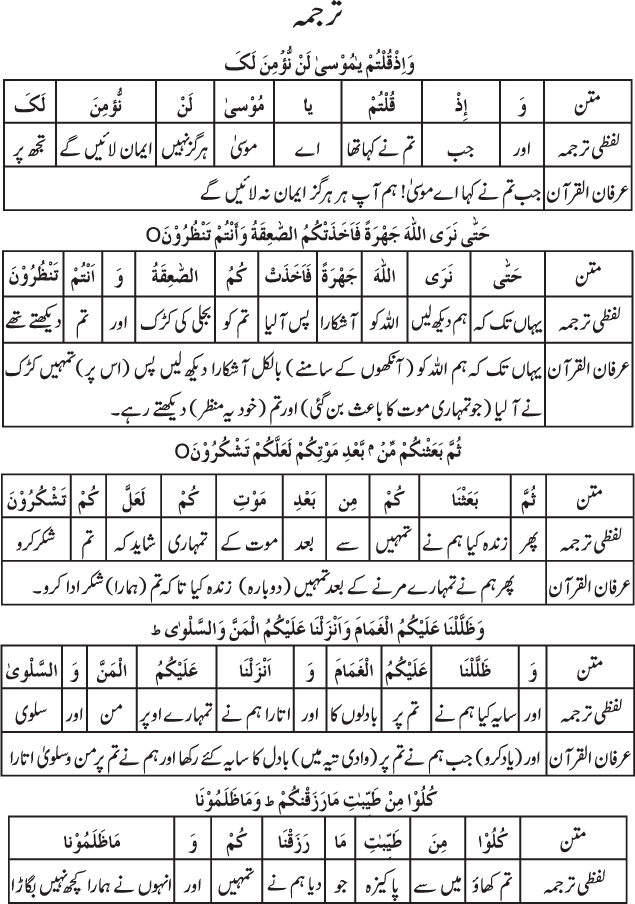 ترجمہ
وَاِذْ قُلْتُمْ يٰمُوْسىٰ لَنْ نُّؤْمِنَ لَکَ
متن وَ اِذْ قُلْتُمْ يا مُوْسىٰ لَنْ نُّؤْمِنَ لَکَ
لفظی ترجمہ اور جب تم نے کہا تھا اے موسیٰ ہرگز نہیں ایمان لائیں گے تجھ پر
عرفان القرآن جب تم نے کہا اے موسیٰ! ہم آپ پر ہرگز ایمان نہ لائیں گے
حَتّٰی نَرَی اللّٰهَ جَهْرَةً فَاَخَذَتْکُمُ الصّٰعِقَةُ وَاَنْتُمْ تَنْظُرُوْنَO
متن حَتّٰی نَرَی اللّٰهَ جَهْرَةً فَاَخَذَتْ کُمُ الصّٰعِقَةُ وَ اَنْتُمْ تَنْظُرُوْنَ
لفظی ترجمہ یہاں تک کہ ہم دیکھ لیں اللہ کو آشکارا پس آ لیا تم کو بجلی کی کڑک اور تم دیکھتے تھے
عرفان القرآن یہاں تک کہ ہم اللہ کو (آنکھوں کے سامنے) بالکل آشکارا دیکھ لیں پس (اس پر) تمہیں کڑک
نے آ لیا (جو تمہاری موت کا باعث بن گئی) اور تم (خود یہ منظر) دیکھتے رہے۔
ثُمَّ بَعَثْنٰکُمْ مِّنْۢ بَعْدِ مَوْتِکُمْ لَعَلَّکُمْ تَشْکُرُوْنَO
متن ثُمَّ بَعَثْنَا کُمْ مِن بَعْدِ مَوْتِ کُمْ لَعَلَّ کُمْ تَشْکُرُوْنَ
لفظی ترجمہ پھر زندہ کیا ہم نے تمہیں سے بعد موت کے تمہاری شاید کہ تم شکر کرو
عرفان القرآن پھر ہم نے تمہارے مرنے کے بعد تمہیں (دوبارہ) زندہ کیا تاکہ تم (ہمارا) شکر ادا کرو۔
وَظَلَّلْنَا عَلَيْکُمُ الْغَمَامَ وَاَنْزَلْنَا عَلَيْکُمُ الْمَنَّ وَالسَّلْوٰی ط
متن وَ ظَلَّلْنَا عَلَيْکُمُ الْغَمَامَ وَ اَنْزَلْنَا عَلَيْکُمُ الْمَنَّ وَ السَّلْویٰ
لفظی ترجمہ اور سایہ کیا ہم نے تم پر بادلوں کا اور اتارا ہم نے تمہارے اوپر من اور سلوی
عرفان القرآن اور (یاد کرو) جب ہم نے تم پر (وادی تیہ میں) بادل کا سایہ کئے رکھا اور ہم نے تم پر من و سلویٰ اتارا
کُلُوْا مِنْ طَيِّبٰتِ مَا رَزَقْنٰکُمْ ط وَمَا ظَلَمُوْنَا
متن کُلُوْا مِنَ طَيِّبٰتِ مَا رَزَقْنَا کُمْ وَ مَاظَلَمُوْنا
لفظی ترجمہ تم کھاؤ میں سے پاکیزہ جو دیا ہم نے تمہیں اور انہوں نے ہمارا کچھ نہیں بگاڑا